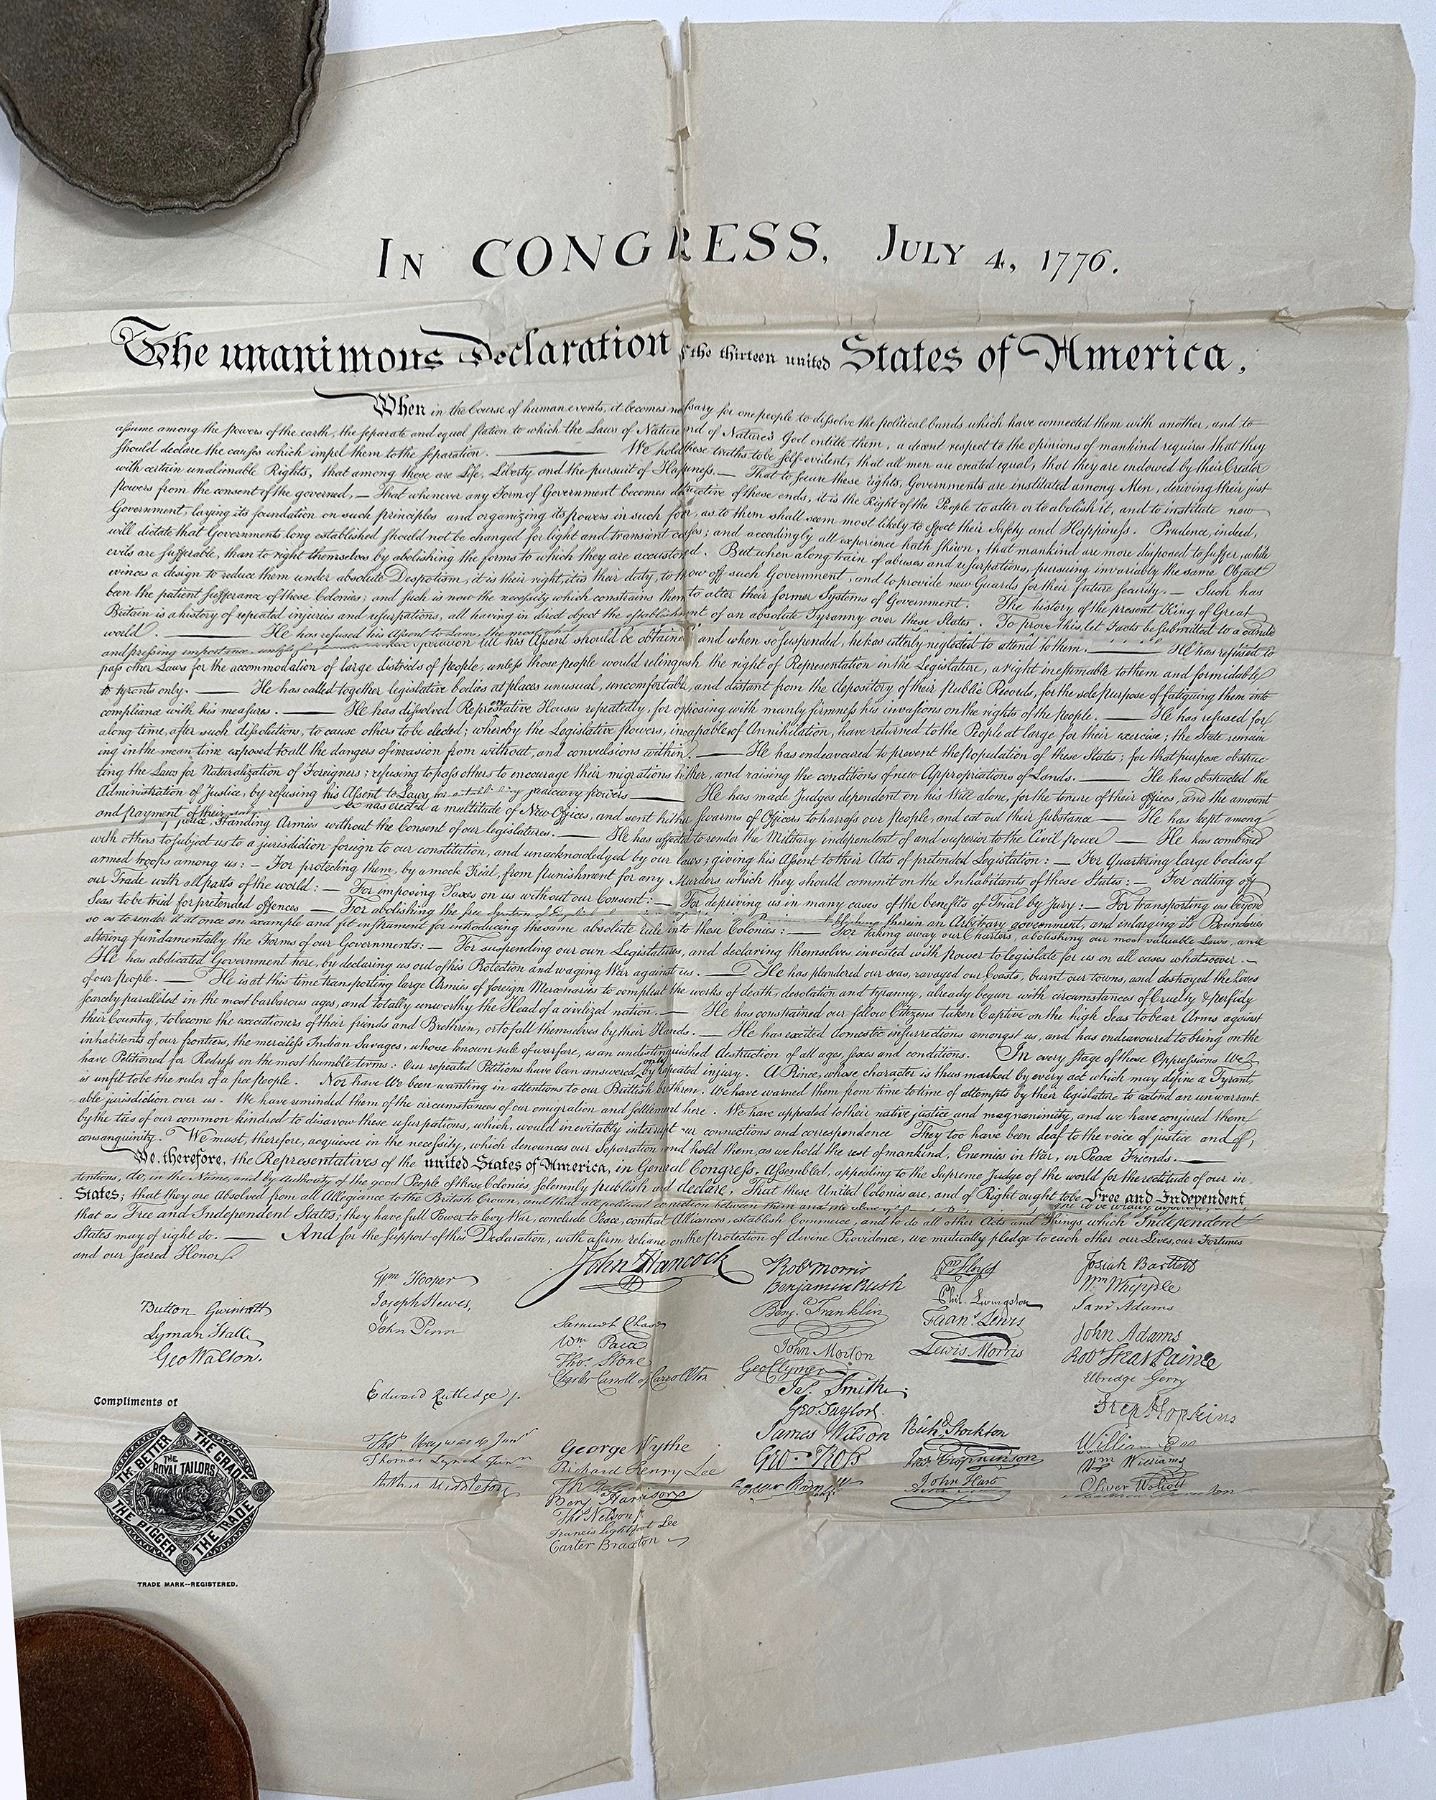 In CONGRESS, July 4, 1776.
The unanimous Declaration of the thirteen united States of America,
When in the Course of human events, it becomes necessary for one people to dissolve the political bands which have connected them with another, and to
assume among the powers of the earth, the separate and equal station to which the Laws of Nature and of Nature's God entitle them, a decent respect to the opinions of mankind requires that they
should declare the causes which impel them to the separation. — We hold these truths to be self-evident, that all men are created equal, that they are endowed by their Creator
with certain unalienable Rights, that among these are Life, Liberty and the pursuit of Happiness. — That to secure these rights, Governments are instituted among Men, deriving their just
powers from the consent of the governed, — That whenever any Form of Government becomes destructive of these ends, it is the Right of the People to alter or to abolish it, and to institute new
Government, laying its foundation on such principles and organizing its powers in such form, as to them shall seem most likely to effect their Safety and Happiness. Prudence, indeed,
will dictate that Governments long established should not be changed for light and transient causes; and accordingly all experience hath shewn, that mankind are more disposed to suffer, while
evils are sufferable, than to right themselves by abolishing the forms to which they are accustomed. But when a long train of abuses and usurpations, pursuing invariably the same Object
evinces a design to reduce them under absolute Despotism, it is their right, it is their duty, to throw off such Government, and to provide new Guards for their future security. — Such has
been the patient sufferance of these Colonies; and such is now the necessity which constrains them to alter their former Systems of Government. The history of the present King of Great
Britain is a history of repeated injuries and usurpations, all having in direct object the establishment of an absolute Tyranny over these States. To prove this, let Facts be submitted to a candid
world. — He has refused his Assent to Laws, the most
and pressing importance, unless suspended in their operation till his Assent should be obtained; and when so suspended, he has utterly neglected to attend to them. — He has refused to
pass other Laws for the accommodation of large districts of people, unless those people would relinquish the right of Representation in the Legislature, a right inestimable to them and formidable
to tyrants only. — He has called together legislative bodies at places unusual, uncomfortable, and distant from the depository of their Public Records, for the sole purpose of fatiguing them into
compliance with his measures. — He has dissolved Representative Houses repeatedly, for opposing with manly firmness his invasions on the rights of the people. — He has refused for
a long time, after such dissolutions, to cause others to be elected; whereby the Legislative powers, incapable of Annihilation, have returned to the People at large for their exercise; the State remain
ing in the mean time exposed to all the dangers of invasion from without, and convulsions within. — He has endeavoured to prevent the population of these States; for that purpose obstruc
ting the Laws for Naturalization of Foreigners; refusing to pass others to encourage their migrations hither, and raising the conditions of new Appropriations of Lands. — He has obstructed the
Administration of Justice, by refusing his Assent to Laws for establishing judiciary powers — He has made Judges dependent on his Will alone, for the tenure of their offices, and the amount
and payment of their He has erected a multitude of New Offices, and sent hither swarms of Officers to harrass our people, and eat out their substance — He has kept among
Standing Armies without the Consent of our legislatures. — He has affected to render the Military independent of and superior to the Civil power — He has combined
with others to subject us to a jurisdiction foreign to our constitution, and unacknowledged by our laws; giving his Assent to their Acts of pretended Legislation: — For Quartering large bodies of
armed troops among us: — For protecting them, by a mock Trial, from punishment for any Murders which they should commit on the Inhabitants of these States: — For cutting off
our Trade with all parts of the world: — For imposing Taxes on us without our Consent: — For depriving us in many cases of the benefits of Trial by Jury: — For transporting us beyond
Seas to be tried for pretended offences — For abolishing the free System of English therein an Arbitrary government, and enlarging its Boundaries
so as to render it at once an example and fit instrument for introducing the same absolute rule into these Colonies: — For taking away our Charters, abolishing our most valuable Laws, and
altering fundamentally the Forms of our Governments: — For suspending our own Legislatures, and declaring themselves invested with power to legislate for us in all cases whatsoever. —
He has abdicated Government here, by declaring us out of his Protection and waging War against us. — He has plundered our seas, ravaged our Coasts, burnt our towns, and destroyed the lives
of our people. — He is at this time transporting large Armies of foreign Mercenaries to compleat the works of death, desolation and tyranny, already begun with circumstances of Cruelty & perfidy
scarcely paralleled in the most barbarous ages, and totally unworthy the Head of a civilized nation. — He has constrained our fellow Citizens taken Captive on the high Seas to bear Arms against
their Country, to become the executioners of their friends and Brethren, or to fall themselves by their Hands. — He has excited domestic insurrections amongst us, and has endeavoured to bring on the
inhabitants of our frontiers, the merciless Indian Savages, whose known rule of warfare, is an undistinguished destruction of all ages, sexes and conditions. In every stage of these Oppressions We
have Petitioned for Redress in the most humble terms: Our repeated Petitions have been answered only by repeated injury. A Prince, whose character is thus marked by every act which may define a Tyrant,
is unfit to be the ruler of a free people. Nor have We been wanting in attentions to our Brittish brethren. We have warned them from time to time of attempts by their legislature to extend an unwarrant
able jurisdiction over us. We have reminded them of the circumstances of our emigration and settlement here. We have appealed to their native justice and magnanimity, and we have conjured them
by the ties of our common kindred to disavow these usurpations, which, would inevitably interrupt our connections and correspondence They too have been deaf to the voice of justice and of
consanguinity. We must, therefore, acquiesce in the necessity, which denounces our Separation, and hold them, as we hold the rest of mankind, Enemies in War, in Peace Friends. —
We, therefore, the Representatives of the united States of America, in General Congress, Assembled, appealing to the Supreme Judge of the world for the rectitude of our in
tentions, do, in the Name, and by Authority of the good People of these Colonies, solemnly publish and declare, That these United Colonies are, and of Right ought to be Free and Independent
States; that they are Absolved from all Allegiance to the British Crown, and that all political connection between them and the
that as Free and Independent States, they have full Power to levy War, conclude Peace, contract Alliances, establish Commerce, and to do all other Acts and Things which Independent
States may of right do. — And for the support of this Declaration, with a firm reliance on the protection of divine Providence, we mutually pledge to each other our Lives, our Fortunes
and our sacred Honor.
Button Gwinnett
Lyman Hall
Geo Walton.
Wm Hooper
Joseph Hewes,
John Penn
Edward Rutledge /.
Thos Heyward Junr
Thomas Lynch Junr
Arthur Middleton
John Hancock
Samuel Chase
Wm Paca
Thos Stone
Charles Carroll of Carrollton
George Wythe
Richard Henry Lee
Th Jefferson
Benj Harrison
Thos Nelson jr
Francis Lightfoot Lee
Carter Braxton
Robt Morris
Benjamin Rush
Benj. Franklin
John Morton
Geo Clymer
Jas. Smith
Geo. Taylor
James Wilson
Geo. Ross
Wm Floyd
Phil. Livingston
Frans. Lewis
Lewis Morris
Richd. Stockton
John Hart
Josiah Bartlett
Wm Whipple
Saml Adams
John Adams
Robt Treat Paine
Elbridge Gerry
Step Hopkins
William
Wm Williams
Oliver Wolcott
Compliments of
THE BETTER THE GRADE
THE BIGGER THE TRADE
THE ROYAL TAILORS
TRADE MARK—REGISTERED.